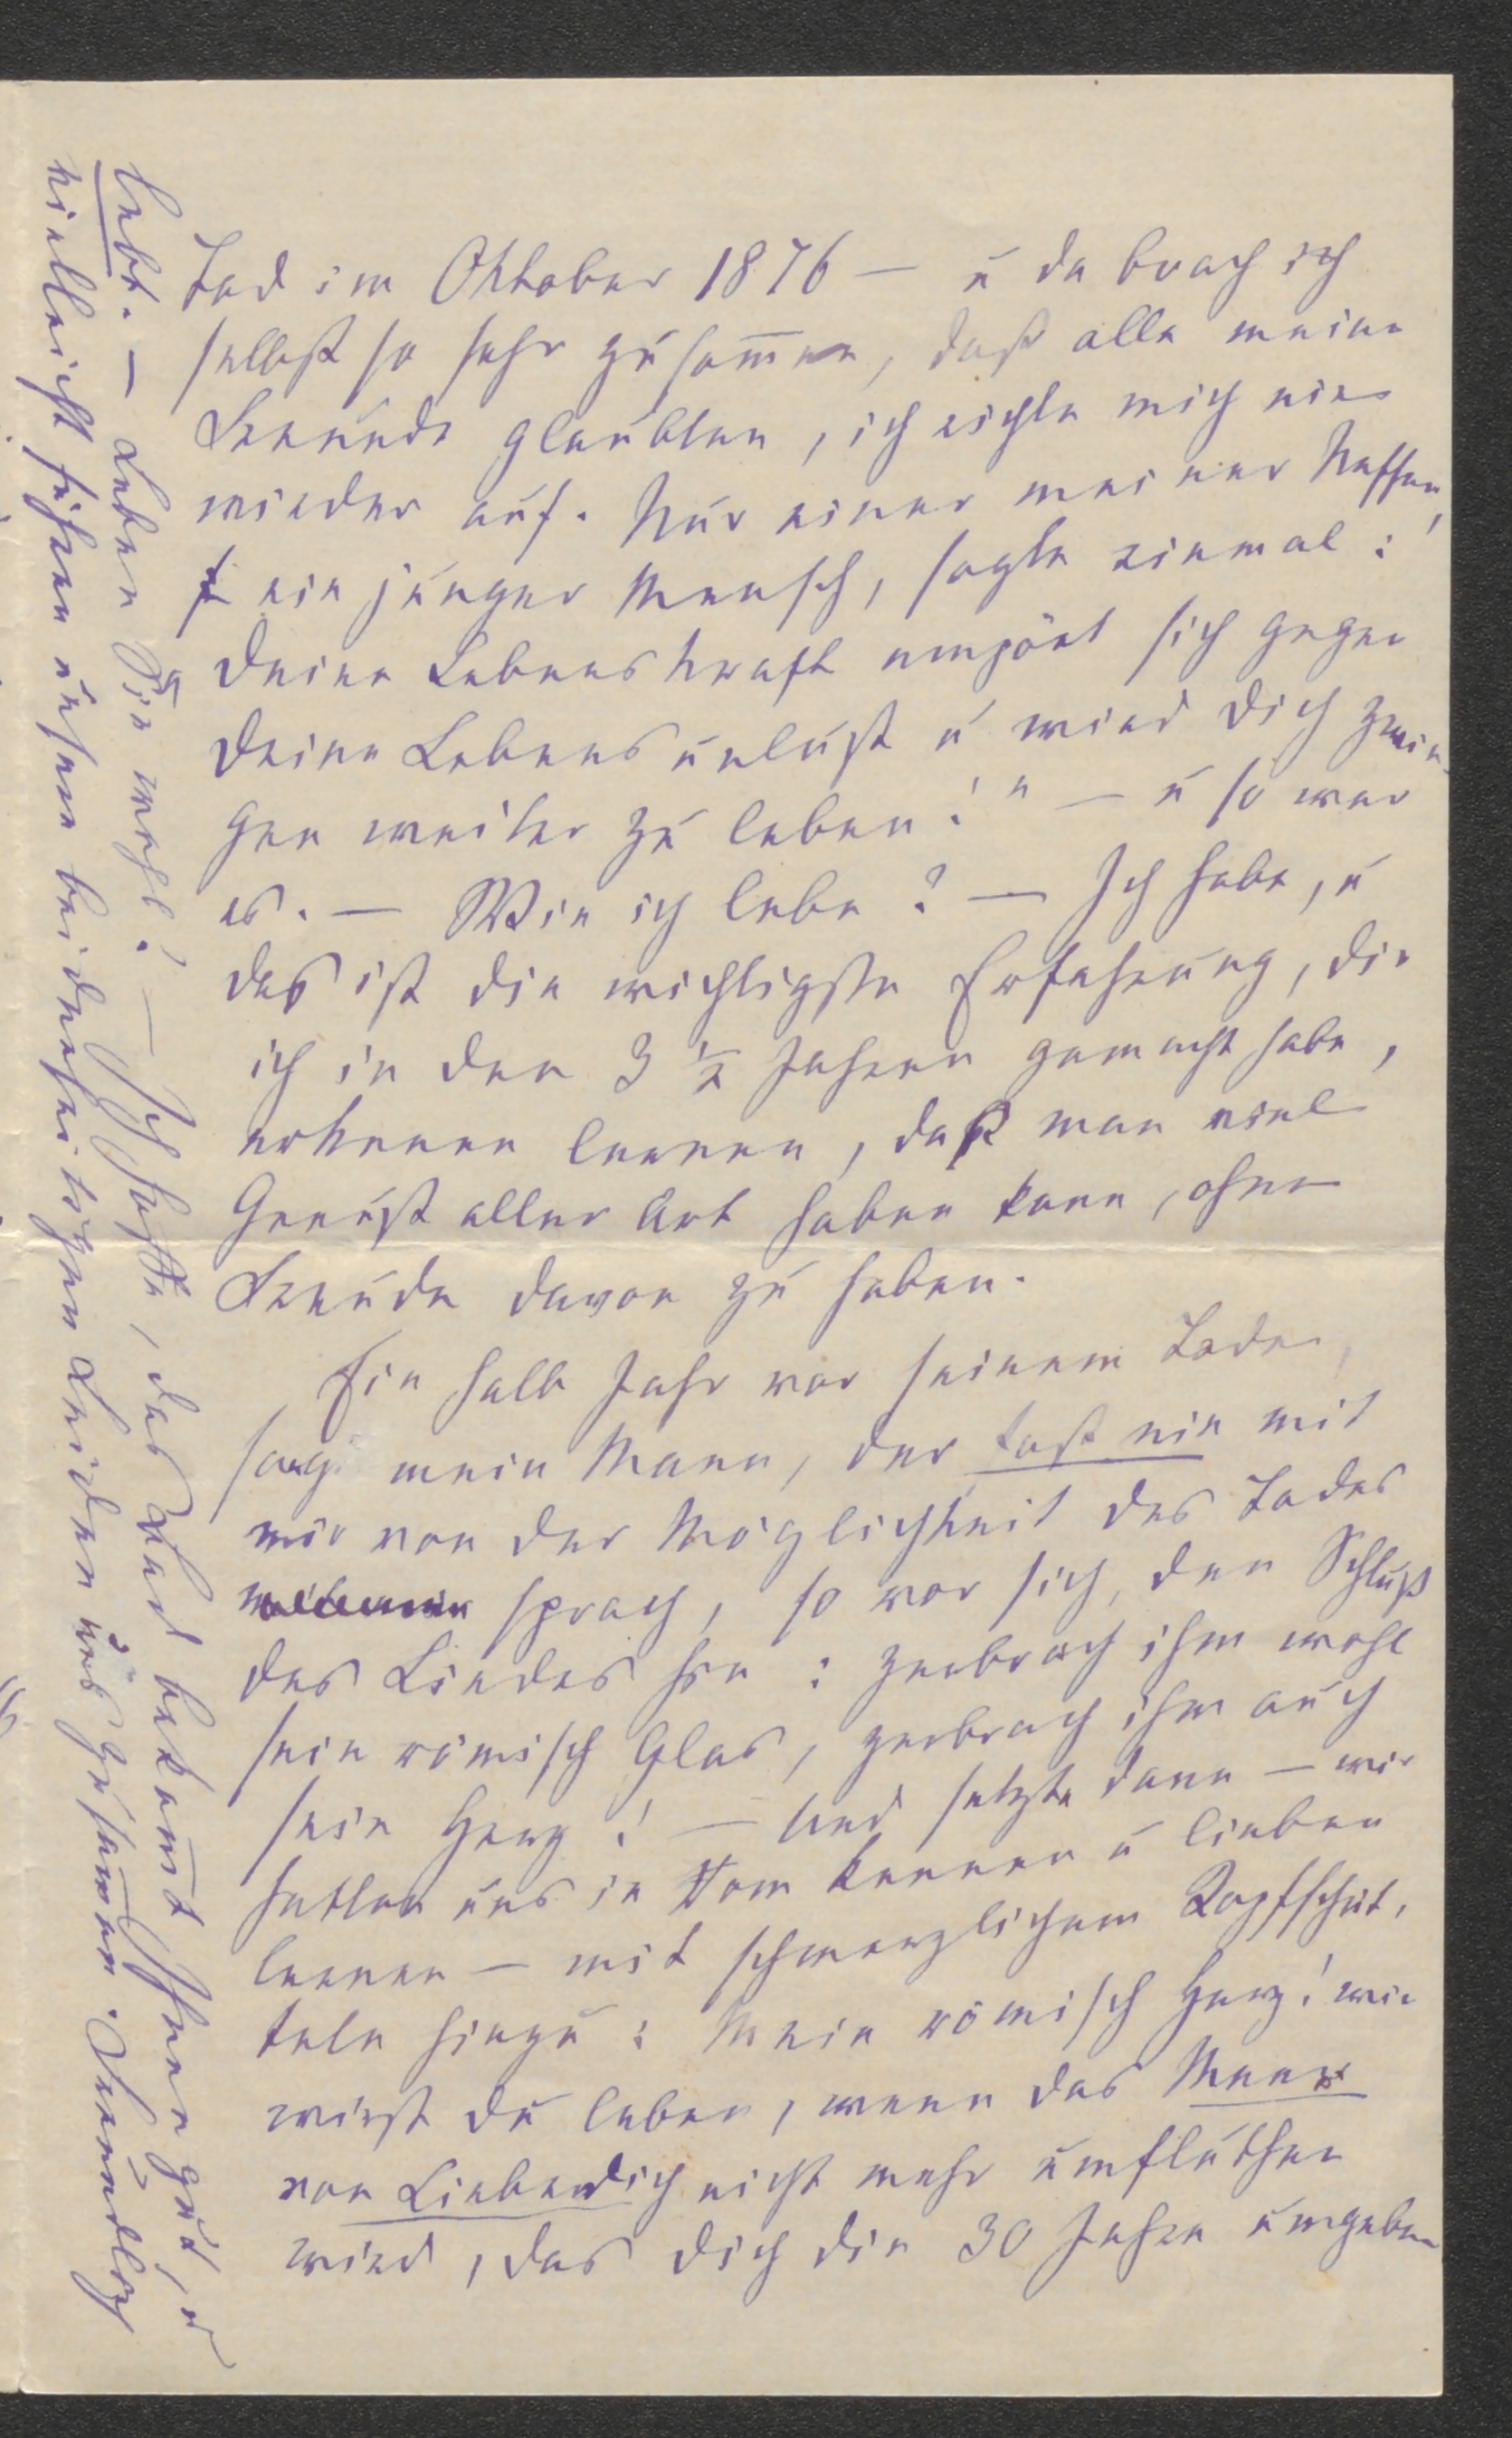 Tod im Oktober 1876 — u da brach ich
selbst so sehr zusam̅en, daß alle meine
Freunde glaubten, ich richte mich nie
wieder auf. Nur einer meiner Neffen,
ein junger Mensch, sagte einmal:
„Deine Lebenskraft empört sich gegen
Deine Lebensunlust u wird Dich zwin-
gen weiter zu leben!" — u so war
es. — Wie ich lebe? — Ich habe, u
das ist die wichtigste Erfahrung, die
ich in den 3 ½ Jahren gemacht habe,
erkennen lernen, daß man viel
Genuß aller Art haben kann, ohne
Freude davon zu haben.
Ein halb Jahr vor seinem Tode,
sang mein Mann, der fast nie mit
mir von der Möglichkeit des Todes
sprach, so vor sich, den Schluß
des Liedes hin: zerbrach ihm wohl
sein römisch Glas, zerbrach ihm auch
sein Herz! — Und setzte dann — wir
hatten uns in Rom kennen u lieben
lernen — mit schmerzlichem Kopfschüt-
teln hinzu: Mein römisch Herz! wie
wirst du leben, wenn das Meer
von Liebe dich nicht mehr umfluthen
wird, das dich die 30 Jahre umgeben
lebt. — Leben Sie wohl! — Ich hoffe, das Bad bekom̅t Ihnen gut, u
vielleicht führen unsere beiderseitigen Leiden uns zusam̅en. Freundlich